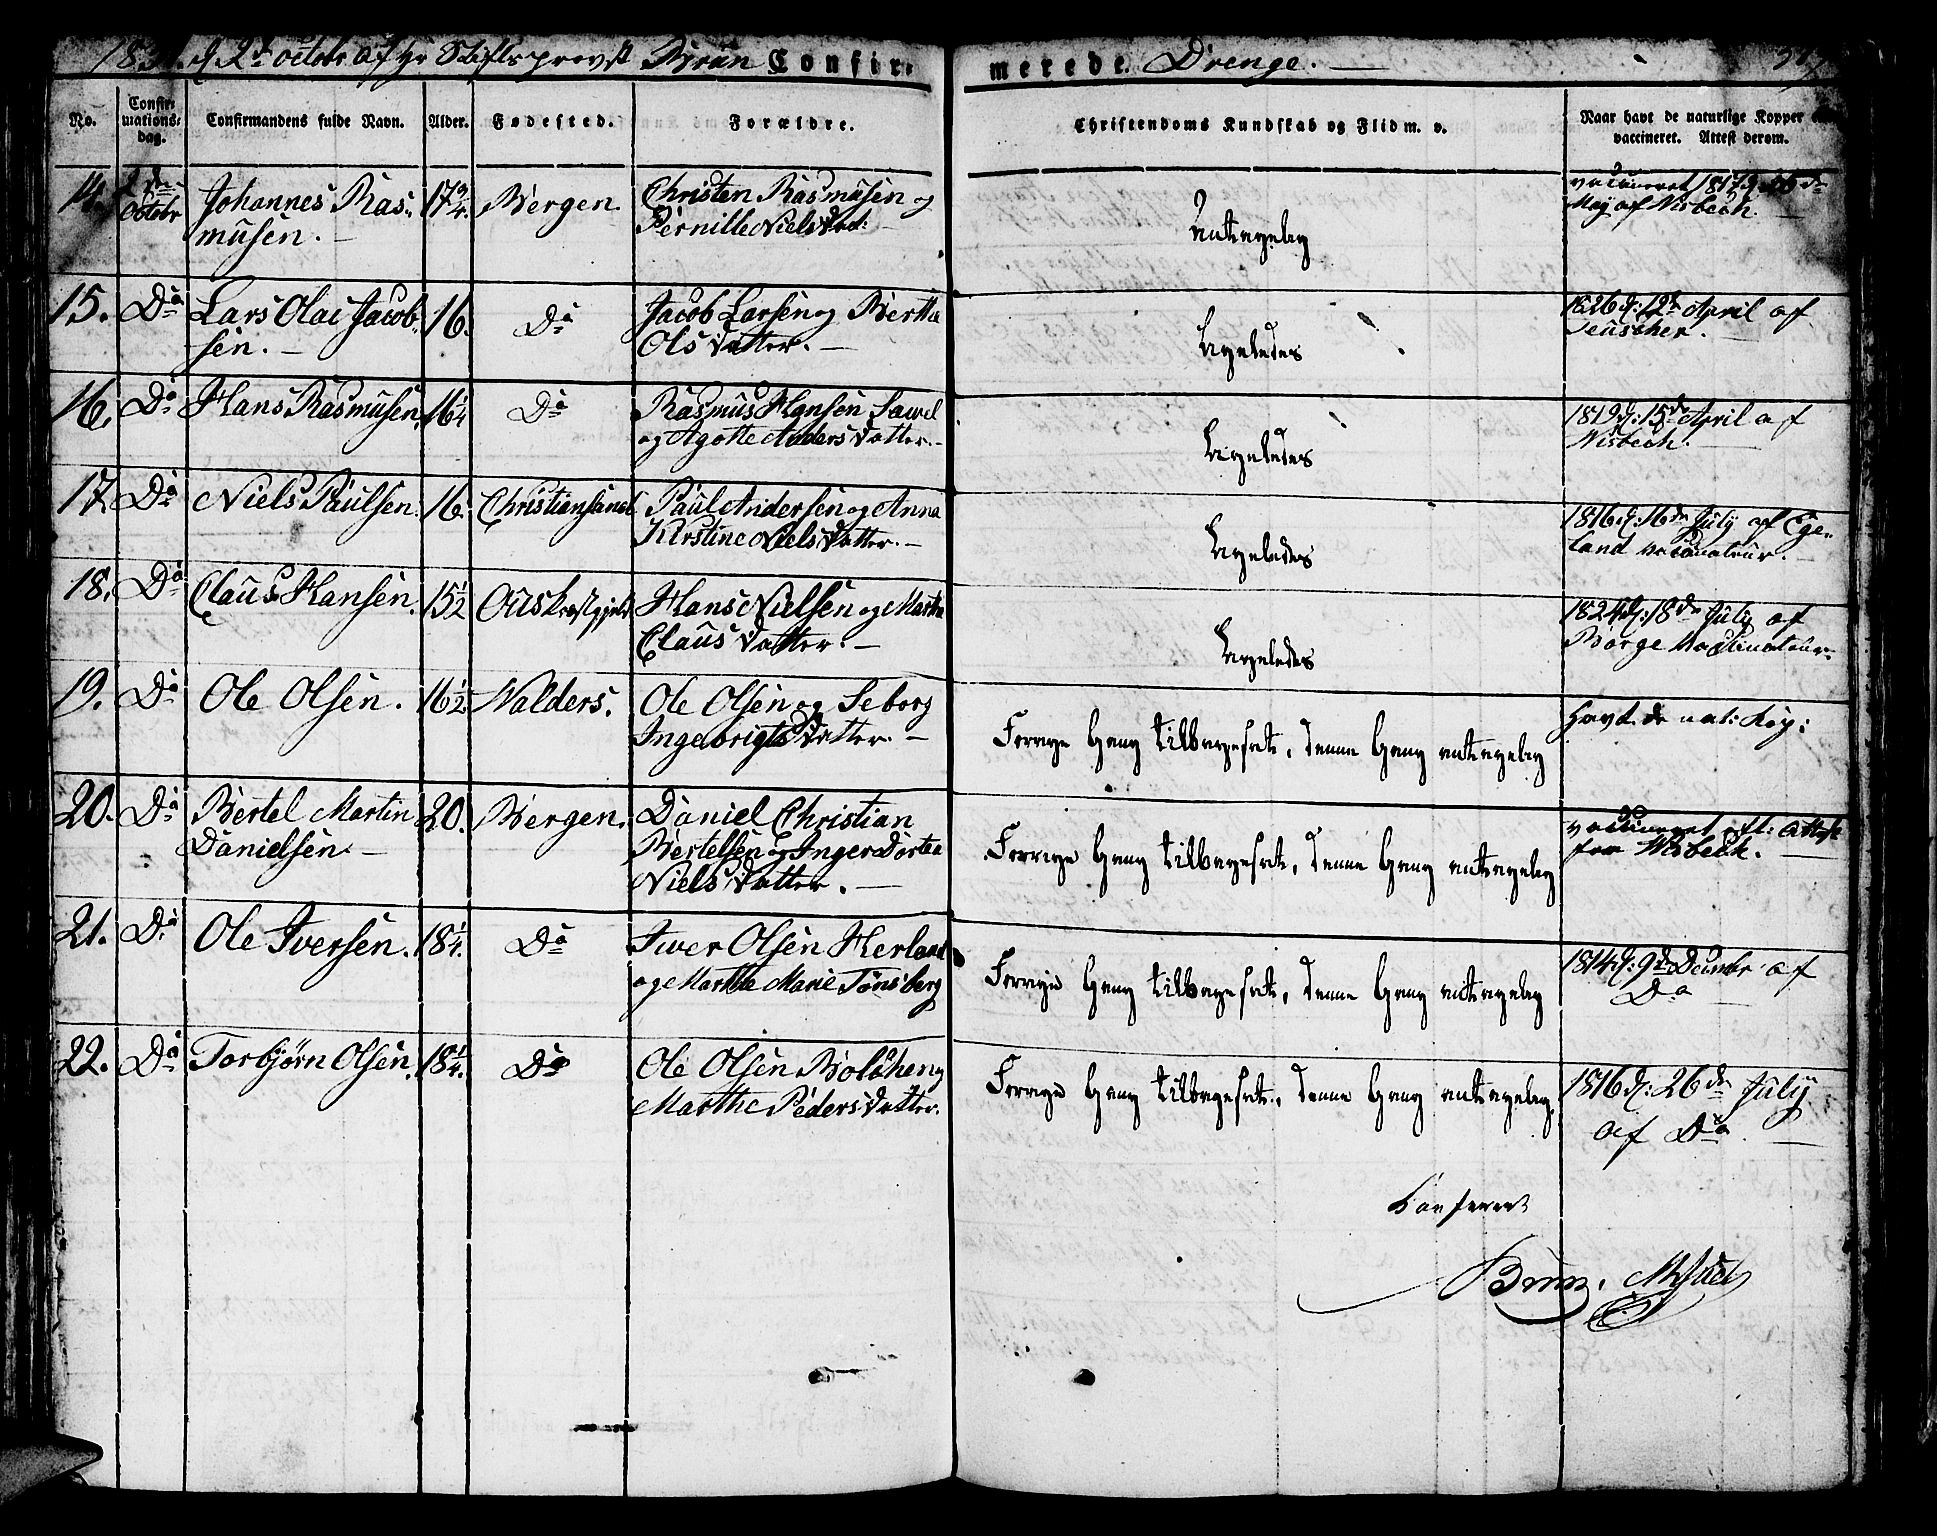 d. 2d octobr af hr Stiftsprovst Brün Confir=
merede. Drenge. —
No.
Confir=
mations=
dag.
Confirmandens fulde Navn.
Alder.
Fødested.
Forældre.
Christendoms Kundskab og Flid m. v.
Naar havt de naturlige Kopper
vaccineret. Attest derom.
14. 2den Octobr Johannes Ras= 17 3/4. Bergen. Christen Rasmusen og
musen. — Pernille Niels Dat:
antagelig
vaccineret
May af Wisbech. —
15. Do Lars Olai Jacob= 16. Do Jacob Larsen og Berthe
sen. — Ols Datter. —
Ligeledes
1826 d: 12t April af
16. Do Hans Rasmusen. 16 1/4 Do Rasmus Hansen
og Agatte Anders Datter. —
Ligeledes
1819 d: 15de April af
Wisbech. —
17. Do Niels Paulsen. 16. Christiansand Paul Andersen og Anna
Kirstine Niels Datter. —
Ligeledes
1816 d: 16de July af Ege=
land vaccinateur. —
18. Do Claus Hansen. 15 1/2 Hans Nielsen og Marthe
Claus Datter. —
Ligeledes
1824 d: 18de July af
Børge Vaccinateur.
19. Do Ole Olsen. 16 1/2 Walders. Ole Olsen og Seborg
Ingebrigts Datter. —
Forrige Gang tilbagesat, denne Gang antagelig
havt de nat: Kop:
20. Do Bertel Martin 20. Bergen. Daniel Christian
Danielsen. — Bertelsen og Inger Dortea
Niels Datter. —
Forrige Gang tilbagesat, denne Gang antagelig
vaccineret eft: Attest
fra Wisbech. —
21. Do Ole Iversen. 18 1/4. Do Iwer Olsen Herland
og Marthe Marie Tønsberg
Forrige Gang tilbagesat, denne Gang antagelig
1814 d: 9de Decembr af
Do
22. Do Torbjørn Olsen. 18 1/4. Do Ole Olsen
Marthe Peders Datter.
Forrige Gang tilbagesat, denne Gang antagelig.
1816 d: 26de July
af Do. —
Confereret
Brun.